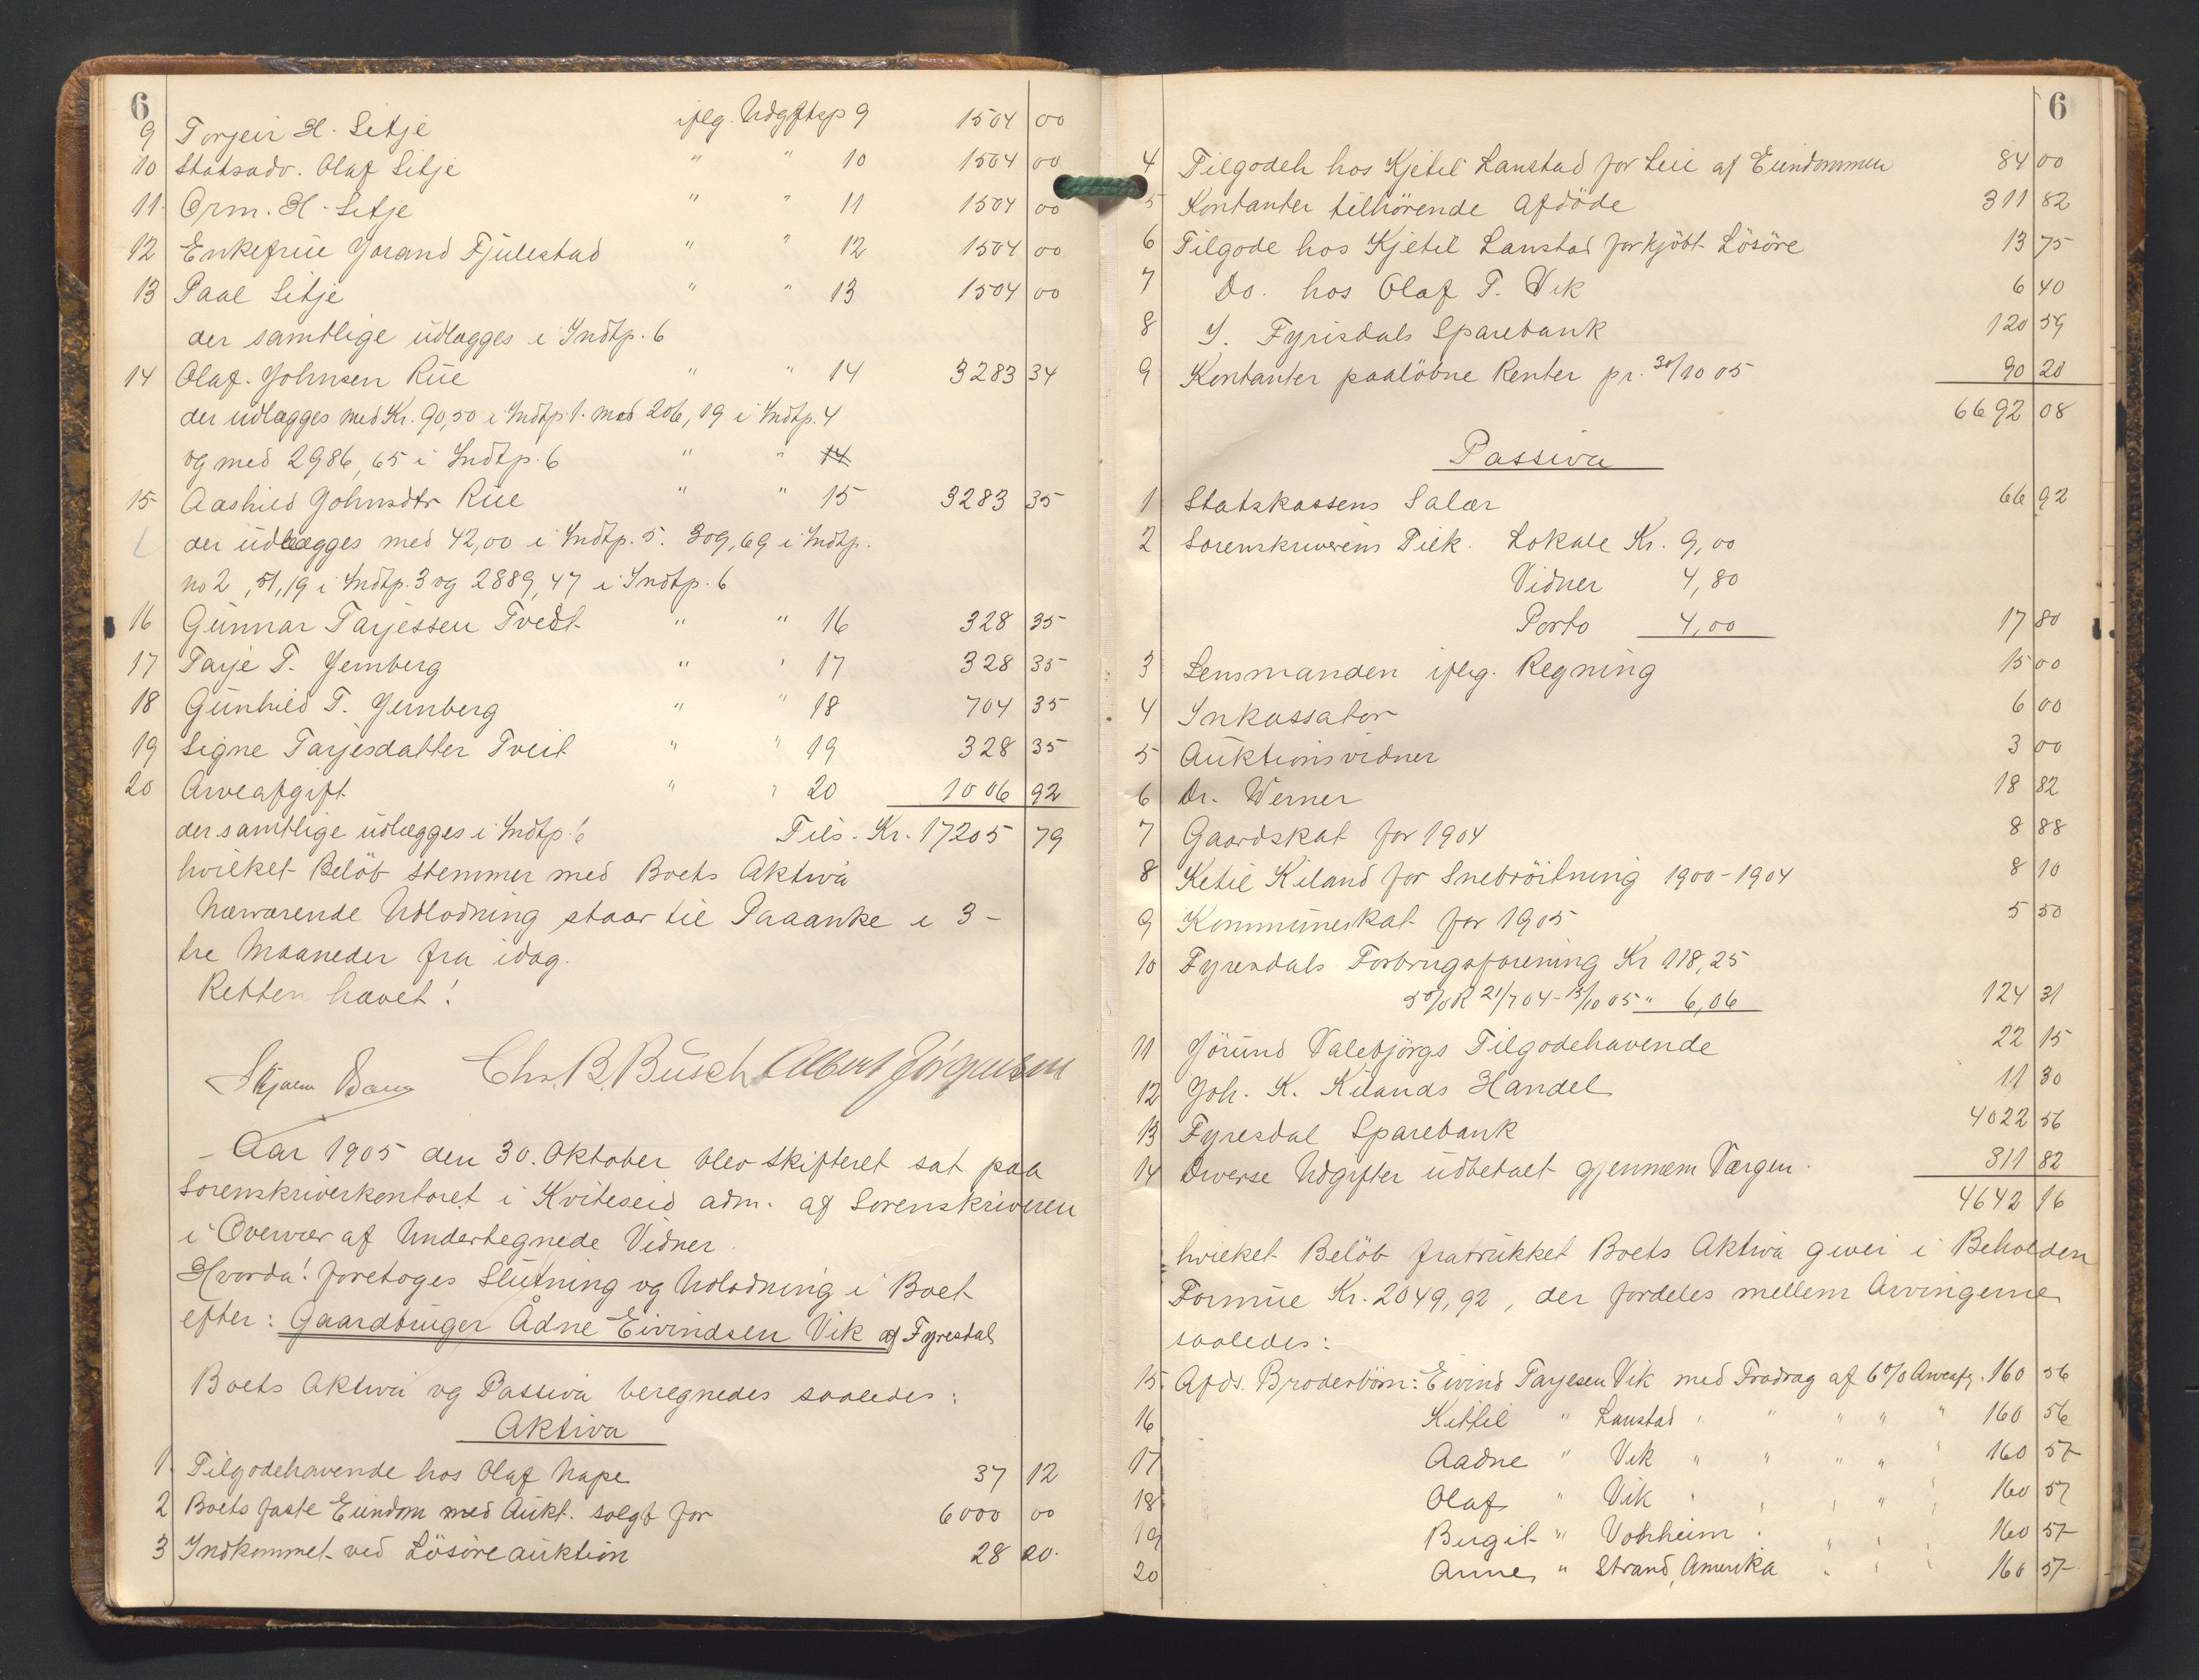 6
9 Torjeir H. Sitje ifløg. Udgiftsp 9 1504 00
10 Statsadv. Olaf Sitje " " 10 1504 00
11 Orm. H. Sitje " " 11 1504 00
12 Enkefrue Jorand Fjulestad " " 12 1504 00
13 Paal Sitje " " 13 1504 00
der samtlige udlægges i Indtp. 6
14 Olaf. Johnsen Rue " " 14 3283 34
der udlægges med Kr. 90,50 i Indtp 1. med 206,19 i Indtp. 4
og med 2986,65 i Indtp. 6 " " 14
15 Aashild Johnsdtr Rue " " 15 3283 35
der udlægges med 42,00 i Indtp. 5. 309,69 i Indtp.
no 2, 51,19 i Indtp. 3 og 2889,47 i Indtp. 6
16 Gunnar Tarjessen Tvedt " " 16 328 35
17 Tarje T. Jernberg " " 17 328 35
18 Gunhild T. Jernberg " " 18 704 35
19 Signe Tarjesdatter Tveit " " 19 328 35
20 Arveafgift " " 20 1006 92
der samtlige udlægges i Indtp. 6 Tils. Kr. 17205 79
hvilket Beløb stemmer med Boets Aktiva
Nærværende Udlodning staar til Paaanke i 3 -
tre Maaneder fra idag.
Retten hævet!
Chr. B. Busch Albert Jörgensen
Aar 1905 den 30. Oktober blev Skifteret sat paa
Sorenskriverkontoret i Kviteseid adm. af Sorenskriveren
i Overvær af Undertegnede Vidner.
Hvorda! foretoges Slutning og Udlodning i Boet
efter: Gaardbruger Ådne Eivindsen Vik af Fyresdal
Boets Aktiva og Passiva beregnedes saaledes:
Aktiva
1. Tilgodehavende hos Olaf Nape 37 12
2 Boets faste Eiendom med Aukt. solgt for 6000 00
3 Indkommet ved Lösöreauktion 28 20.
6
4 Tilgodeh hos Kjetil Lanstad for Leie af Eiendommen 84 00
5 Kontanter tilhörende Afdöde 311 82
6 Tilgode hos Kjetil Lanstad for kjöbt Lösöre 13 75
7 Do. hos Olaf T. Vik 6 40
8 I. Fyrisdals Sparebank 120 59
9 Kontanter paalöbne Renter pr. 30/10 05 90 20
6692 08
Passiva
1 Statskassens Salær 66 92
2 Sorenskriverens Tilk. Lokale Kr. 9,00
Vidner 4,80
Porto 4,00 17 80
3 Lensmanden ifløg. Regning 15 00
4 Inkassator 6 00
5 Auktionsvidner 3 00
6 Dr. Werner 18 82
7 Gaardskat for 1904 8 88
8 Ketil Kiland for Snebröitning 1900-1904 8 10
9 Kommuneskat for 1905 5 50
10 Fyresdals Forbrugsforening Kr 118,25
5% R 21/7 04 - 15/10 05 " 6,06 124 31
11 Jörund Valebjörgs Tilgodehavende 22 15
12 Joh. K. Kilands Handel 11 30
13 Fyresdal Sparebank 4022 56
14 Diverse Udgifter udbetalt gjennem Værgen. 311 82
4642 16
hvilket Belöb fratrukket Boets Aktiva giver i Beholden
Formue Kr. 2049,92, der fordeles mellem Arvingerne
saaledes:
15 Afds. Broderbörn: Eivind Tarjesen Vik med Fradrag af 6% Arveafg. 160 56
16 Kittil " Lanstad " " " " " 160 56
17 Aadne " Vik " " " " " 160 57
18 Olaf " Vik " " " " " 160 57
19 Birgit " Vohheim " " " " 160 57
20 Anne " Strand, Amerika " " " 160 57